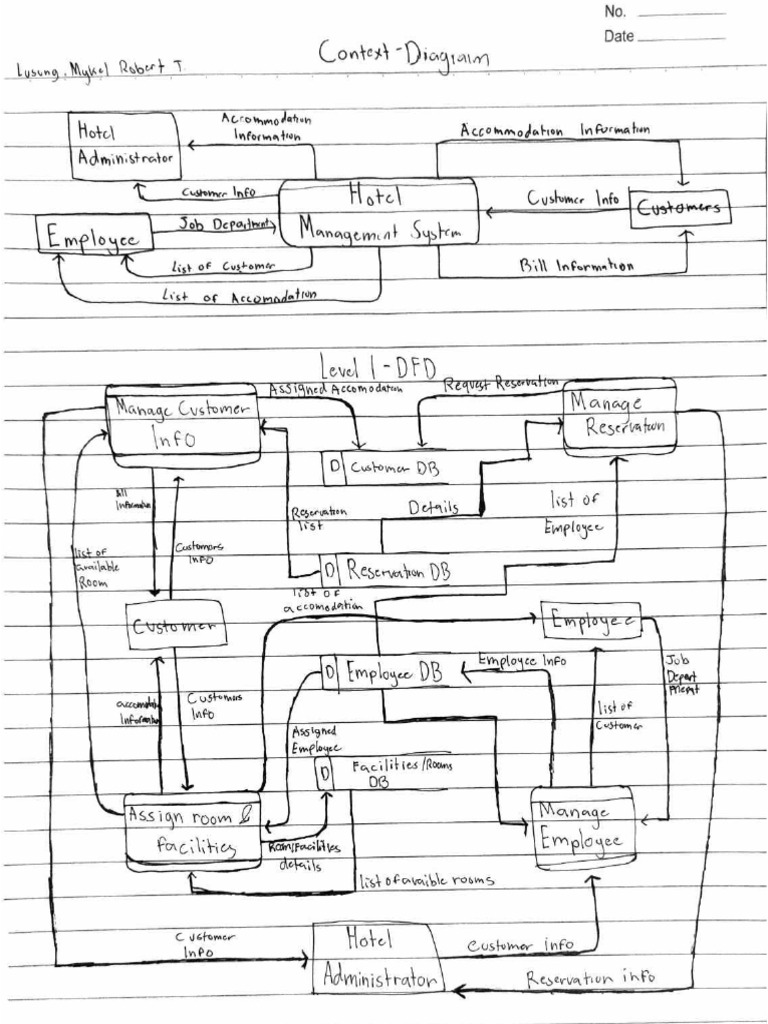 No.
Date
Context-Diagram
Lusung, Mykel Robert T.
Hotel
Administrator
Accommodation
Information
Accommodation Information
Customer Info
Hotel
Management System
Customer Info
Customers
Employee
Job Department
List of Customer
Bill Information
List of Accomodation
Level 1-DFD
Assigned Accomodation
Request Reservation
Manage Customer
Info
Manage
Reservation
D Customer DB
Bill
Information
Reservation
list
Details
list of
Employee
Customers
Info
list of
available
Room
D Reservation DB
list of
accomodation
Customer
Employee
D Employee DB
Employee Info
Job
Depart
ment
accomodation
Information
Customers
Info
list of
Customer
Assigned
Employee
D Facilities/Rooms
DB
Assign room &
facilities
Manage
Employee
Room/Facilities
details
list of avaible rooms
Customer
Info
Hotel
Administrator
Customer info
Reservation info